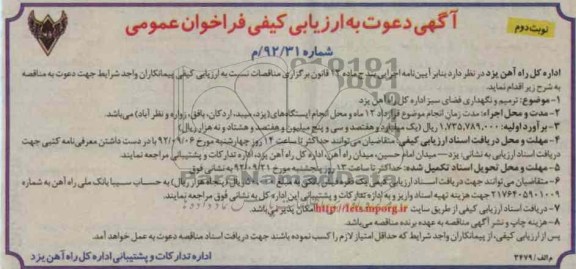 آگهی دعوت به ارزیابی کیفی فراخوان عمومی
نوبت دوم
شماره ۹۲/۳۱/م
اداره کل راه آهن یزد در نظر دارد بنابر آیین نامه اجرایی بند ج ماده ۱۲ قانون برگزاری مناقصات نسبت به ارزیابی کیفی پیمانکاران واجد شرایط جهت دعوت به مناقصه
به شرح زیر اقدام نماید.
۱- موضوع: ترمیم و نگهداری فضای سبز اداره کل راه آهن یزد
۲- مدت و محل اجراء: مدت زمان انجام موضوع قرارداد ۱۲ ماه و محل انجام ایستگاه‌های (یزد، میبد، اردکان، بافق، زواره و نظر آباد) می‌باشد.
۳- برآورد اولیه: ۱,۷۳۵,۷۸۹,۰۰۰ ریال (یک میلیارد و هفتصد و سی و پنج میلیون و هفتصد و هشتاد و نه هزار ریال)
۴- مهلت و محل دریافت اسناد ارزیابی کیفی: متقاضیان می‌توانند حداکثر تا ساعت ۱۴ روز چهارشنبه مورخ ۹۲/۰۹/۰۶ با در دست داشتن معرفی‌نامه کتبی جهت
دریافت اسناد ارزیابی به نشانی: یزد – میدان امام حسین، میدان راه آهن، اداره کل راه آهن یزد، اداره تدارکات و پشتیبانی مراجعه نمایند.
۵- مهلت و محل تحویل اسناد تکمیل شده: حداکثر تا ساعت ۱۳ روز پنجشنبه مورخ ۹۲/۰۹/۲۱ به نشانی فوق
۶- متقاضیان می‌توانند جهت دریافت اسناد ارزیابی به حساب سیبا بانک ملی راه آهن به شماره
۲۱۷۶۴۰۵۹۱۰۰۹ جهت هزینه تهیه اسناد واریز و به اداره تدارکات و پشتیبانی این اداره کل به نشانی فوق مراجعه نمایند.
۷- دریافت اسناد ارزیابی کیفی از طریق سایت http://iets.mporg.ir امکان پذیر می‌باشد.
۸- هزینه چاپ و نشر آگهی مناقصه به عهده برنده مناقصه می‌باشد.
پس از ارزیابی کیفی، از پیمانکاران واجد شرایط که حداقل امتیاز لازم را کسب نموده باشند جهت دریافت اسناد مناقصه دعوت به عمل خواهد آمد.
اداره تدارکات و پشتیبانی اداره کل راه آهن یزد
م الف / ۳۴۷۹